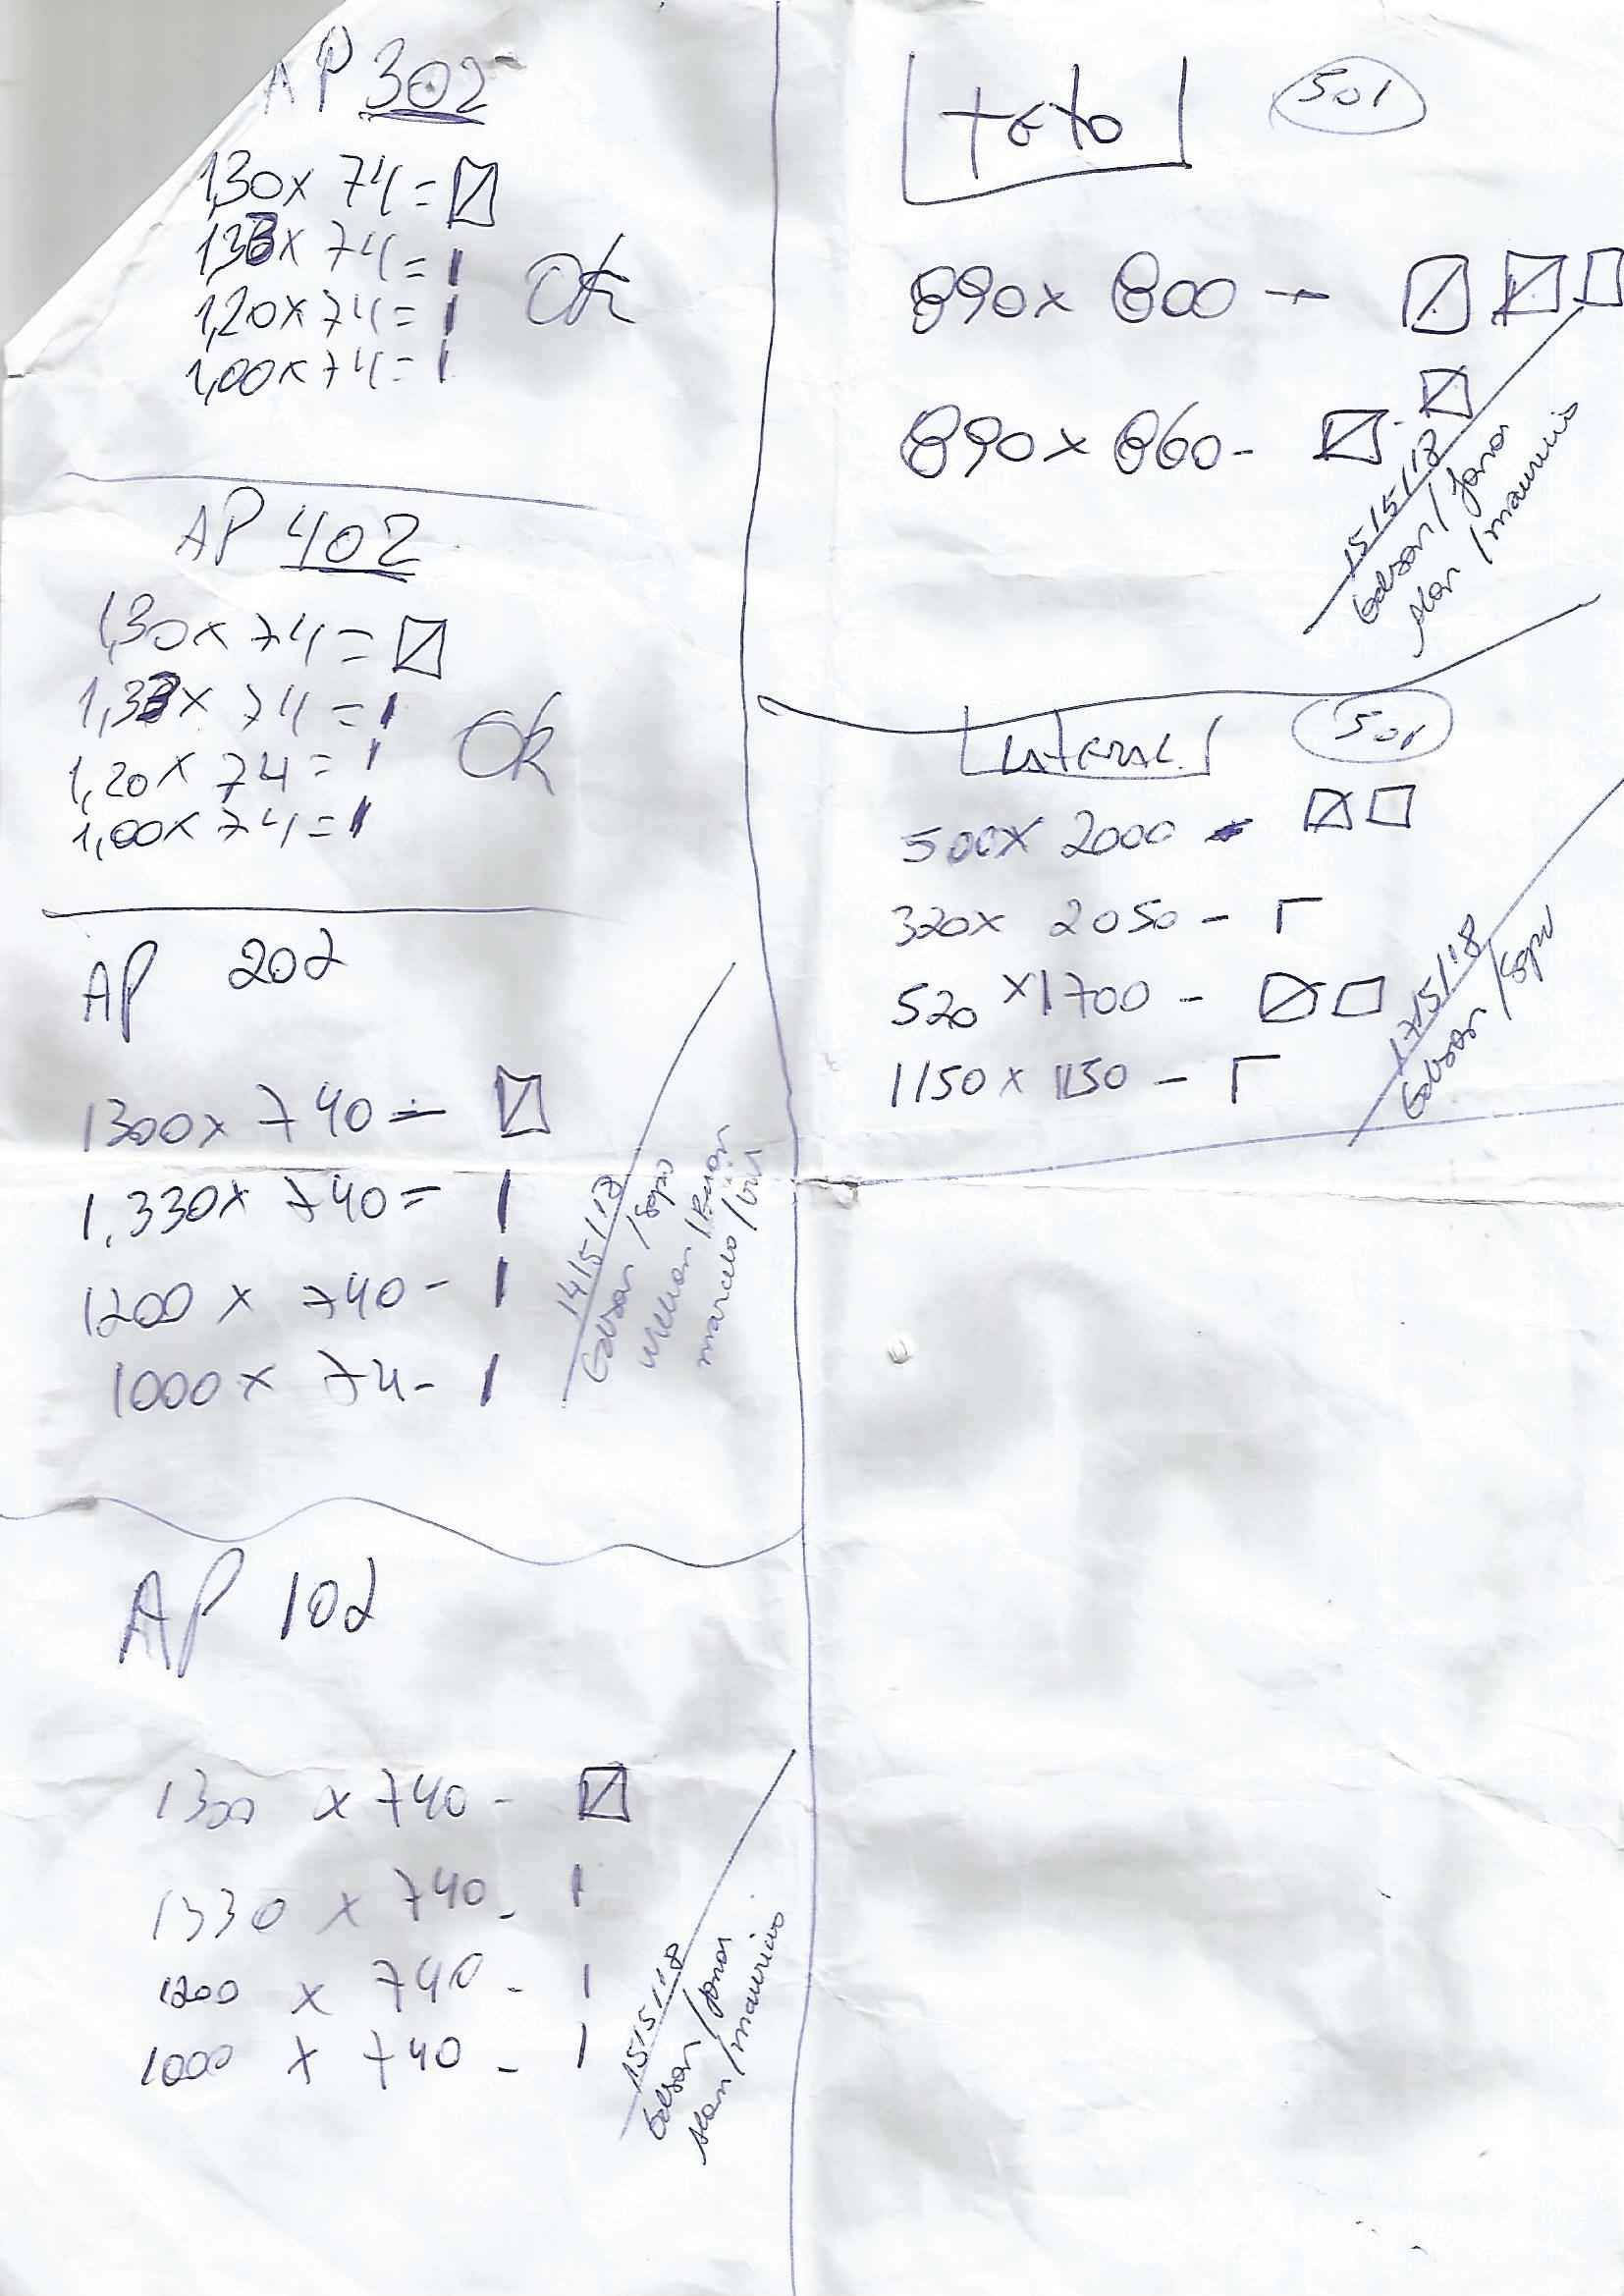 AP 302
1,30x 74 =
1,33x 74 = 1
1,20x 74 = 1
1,00x 74 = 1
OK
AP 402
1,30x 74 =
1,33x 74 = 1
1,20x 74 = 1
1,00x 74 = 1
OK
AP 202
1300x 740 =
1,330x 740 = 1
1200 x 740 - 1
1000 x 74 - 1
14/5/18
Edson / Sapo
marcelo /
AP 102
1300 x 740 -
1330 x 740 - 1
1200 x 740 - 1
1000 x 740 - 1
15/5/18
Edson / Jonas
Alan / mauricio
teto 501
890x 800 -
890x 860 -
15/5/18
Edson / Jonas
Alan / mauricio
LATERAL 501
500x 2000 -
320x 2050 -
520 x 1700 -
1150 x 1150 -
17/5/18
Edson / Sapo